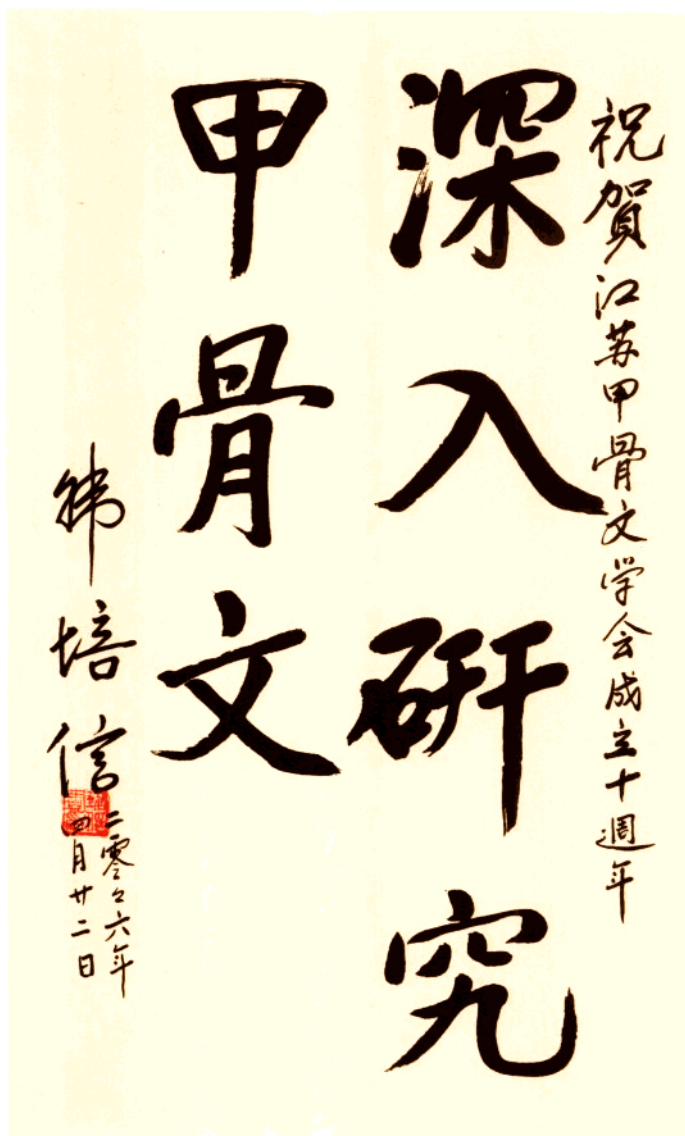 祝賀江苏甲骨文学会成立十週年
深入研究
甲骨文
韩培信
二零々六年
四月廿二日